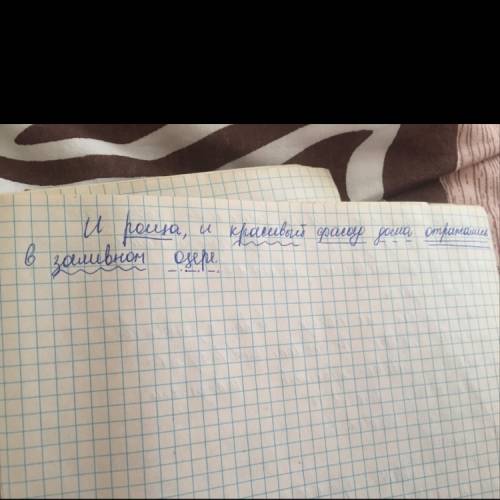 И роща, и красивый фасад дома отражались
в заливном озере.